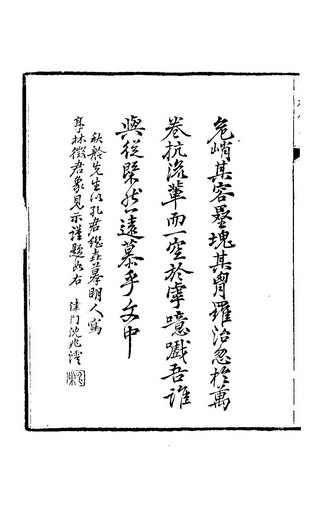 危峭其容壘塊其胷羅治忽於萬
卷抗流輩而一空於虖噫戲吾誰
與從緊然遠慕乎文中
秋舲先生以孔君繼堯摹明人寫
亭林徵君象見示謹題如右 津門沈兆澐